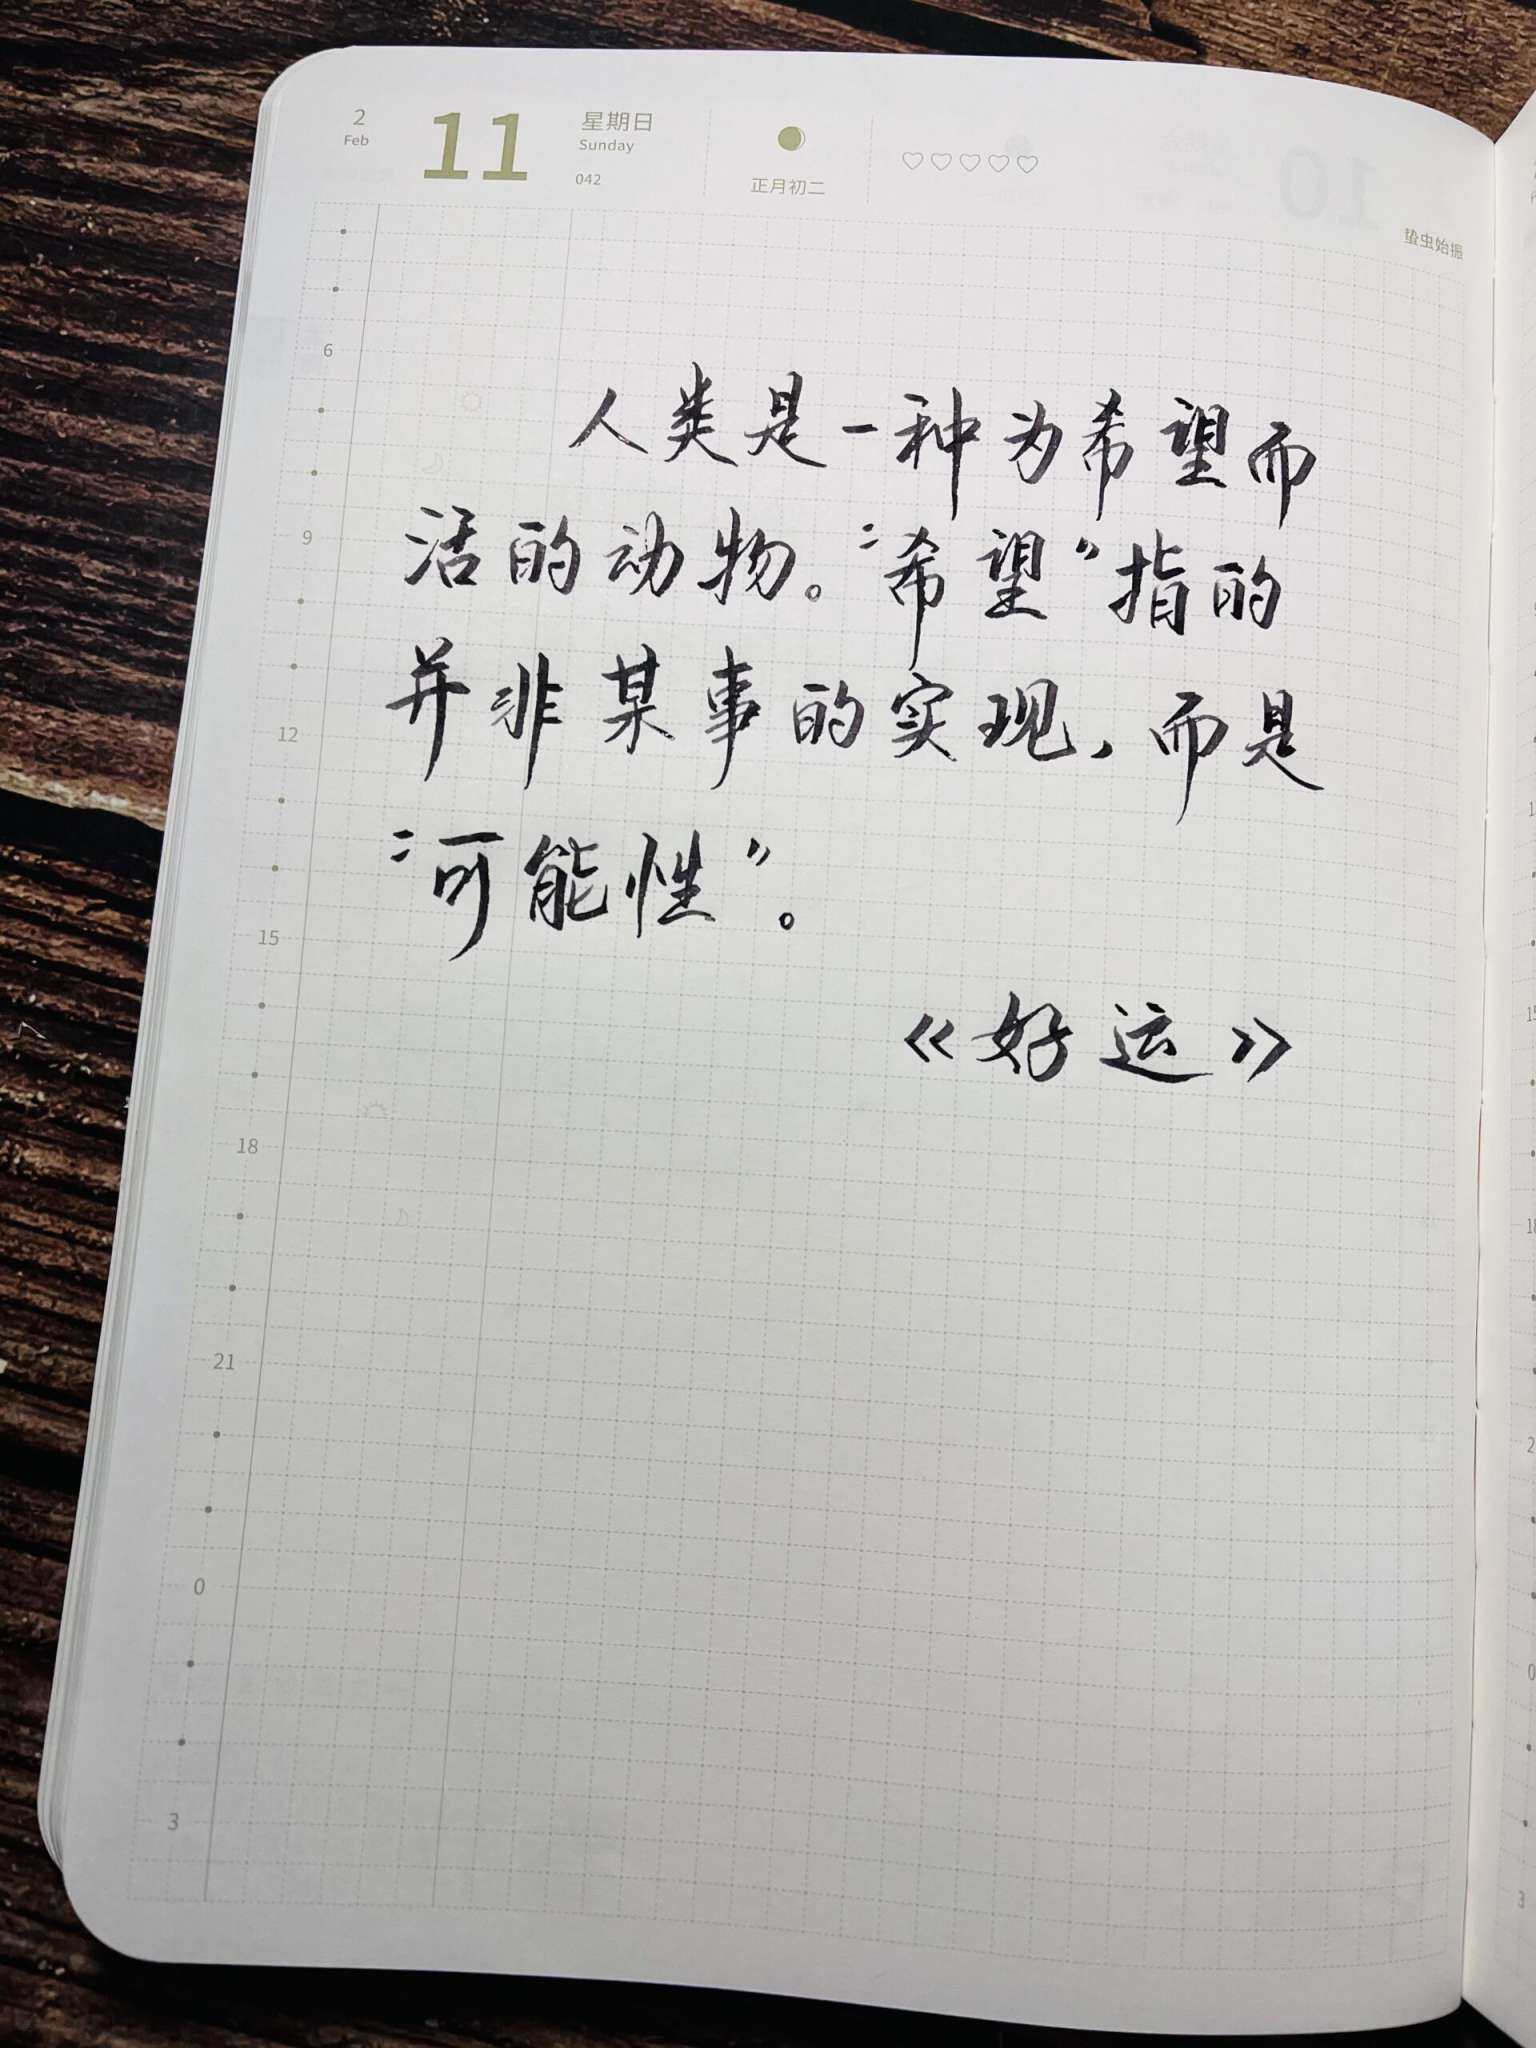 2
Feb
11
星期日
Sunday
042
正月初二
蛰虫始振
人类是一种为希望而
活的动物。“希望”指的
并非某事的实现，而是
“可能性”。
《好运》
6
9
12
15
18
21
0
3